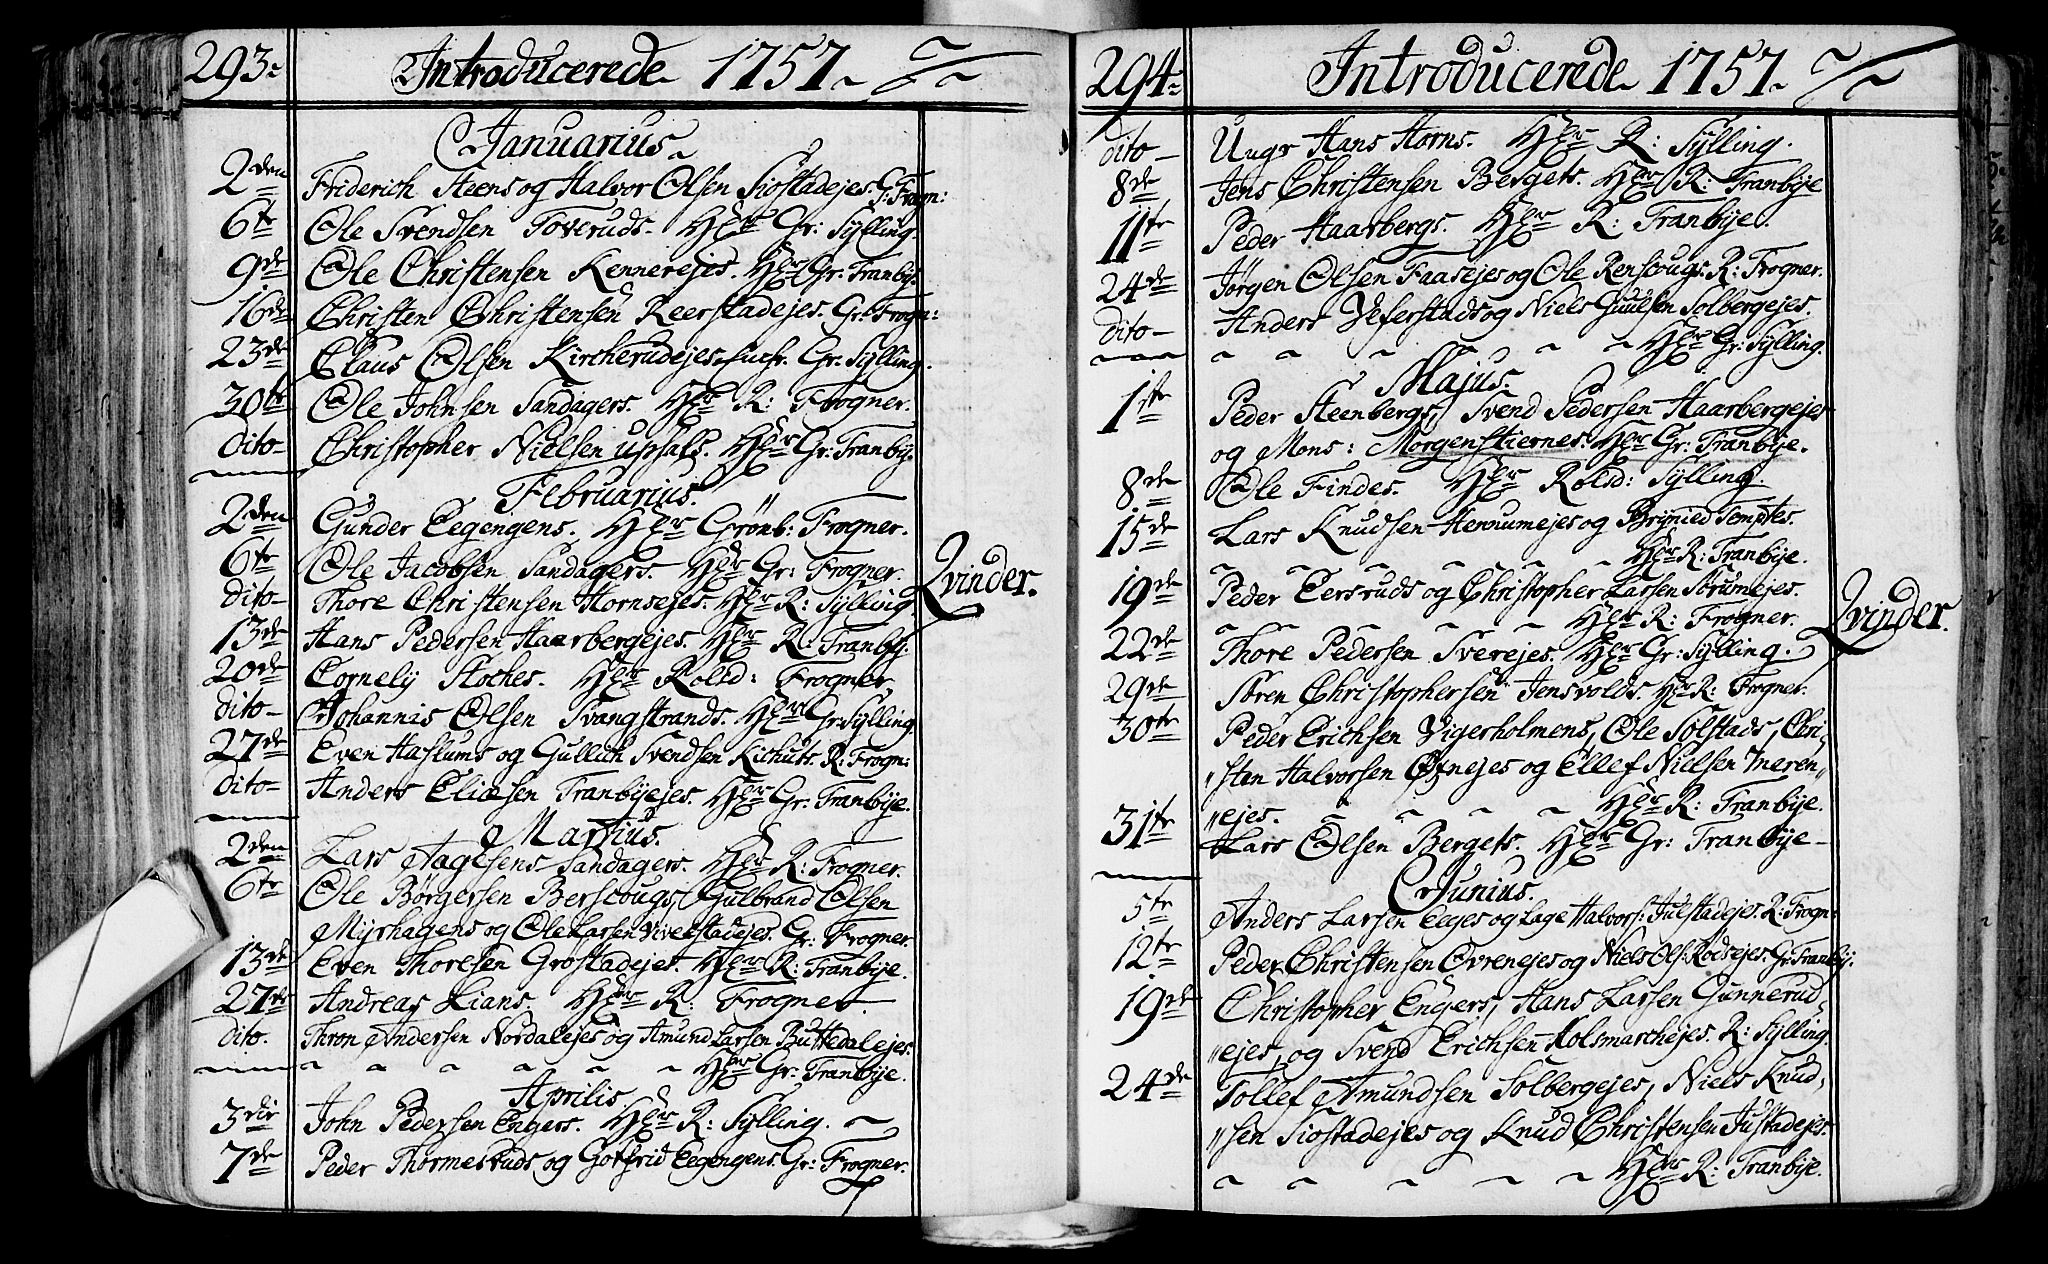 293 Introducerede 1757
Januarius
2den Friderich Steens og Halvor Olsen Siøstadejes. G: Frogn:
6te Ole Svendsen Toveruds. Her Gr: Sylling.
9de Ole Christensen Kennerejes. Hr Gr: Tranby.
16de Christen Christensen Reerstadejes. Gr: Frogn:
23de Claus Olsen Kircherudejes Gr: Sylling.
30te Ole Johnsen Sandagers. Hr R: Frogner.
dito Christopher Nielsen Upsals. Hr Gr: Tranby.
Februarius.
2den Gunder Eegengens. Hr Grönb: Frogner.
6te Ole Jacobsen Sandagers. Hr Gr: Frogner.
dito Thore Christensen Hornsejes. Hr R: Sylling
13de Hans Pedersen Haarbergejes. Hr R: Tranby.
20de Cornely Stoches. Hr Rolsd: Frogner
dito Johannis Olsen Svangstrands. Hr Gr: Sylling
27de Even Haslums og Gulluth Svendsen Kichuts. R: Frogn:
dito Anders Eliæsen Tranbyejes. Hr Gr: Tranbye.
Martius.
2den Lars Aagesens Sandagers. Hr R: Frogner.
6te Ole Börgersen Berscougs, Gulbrand Olsen
Myrhagens og Ole Larsen Viverstadejes. Gr: Frogner.
13de Even Thoresen Grostadejes. Hr R: Tranbye.
27de Andreas Lians. Hr R: Frogner
dito. Thron Andersen Nordalejes og Amund Larsen Buttedalejes.
Hr Gr: Tranbye.
Aprilis
3die John Pedersen Engers. Hr R: Sylling.
7de Peder Thormesruds og Gotfrid Eegengens. Gr: Frogner.
Qvinder.
294 Introducerede 1757
dito Ungr Hans Horns. Hr R: Sylling.
8de Jens Christensen Bergets. Hr R: Tranbye
11te Peder Haarbergs. Hr R: Tranbye.
24de Jørgen Olsen Faasejes og Ole Renscougs. R: Frogner.
dito Anders Vefferstads og Niels Guulsen Solbergejes.
Hr Gr: Sylling.
Majus.
1ste Peder Steenbergs, Svend Pedersen Haarbergejes
og Mons: Morgenstiernes. Hr Gr: Tranbye.
8de Ole Findes. Hr Rolsd: Sylling.
15de Lars Knudsen Hennumejes og Brynild Temptes.
Hr R: Tranbye.
19de Peder Eersruds og Christopher Larsen Strumejes.
Hr R: Frogner.
22de Thore Pedersen Sverejes. Hr Gr: Sylling.
29de Sören Christophersen Jensvolds. Hr R: Frogner.
30te Peder Erichsen Vigerholmens, Ole Solstads, Chri,
"sten Halvorsen Østnejes og Ellef Nielsen Meren"
"ejes. Hr R: Tranbye.
31te Lars Olsen Bergets. Hr Gr: Tranbye
Junius.
5te Anders Larsen Eeges og Lage Halvors: Julstadejes. R: Frogn:
12te Peder Christensen Ovrenejes og Niels Ols: Rodsejes. Gr: Tranby.
19de Christopher Engers, Hans Larsen Gunnerud,
"ejes, og Svend Erichsen Holsmarchejes. R: Sylling.
24de Tollef Amundsen Solbergejes, Niels Knud,
"sen Siostadejes og Knud Christensen Justadejes.
Hr R: Tranbye.
Qvinder.